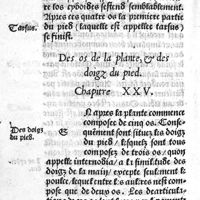 re los cyboides s'estend semblablement.
Apres ces quatre os la premiere partie
Tarsus.
du pied, laquelle est appellee tarsus,
se finist.
Des os de la plante, & des
doigz du pied.
Chapitre XXV.
En apres la plante commence
composee de cinq os. Conse-
Des doigz
du pied.
quemment sont situez les doigz
du pied, lesquelz sont tous
composez de trois os, quon
appelle internodia, a la similitude des
doigz de la main, excepte seulement le
poulce, lequel entre eux n'est composé
que de deux os. Les denticula-